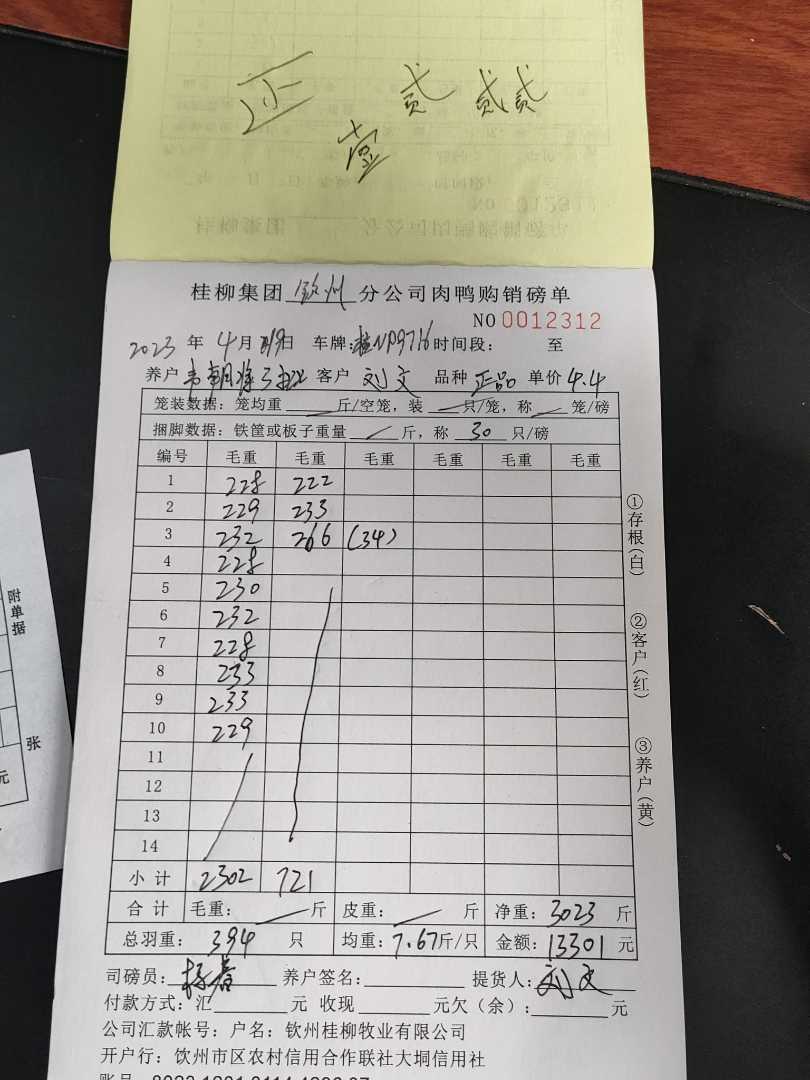 正 贰 贰贰
壹
桂柳集团 钦州 分公司肉鸭购销磅单
NO 0012312
2023 年 4 月 19 日 车牌: 桂NP9716 时间段: 至
养户 客户 刘文 品种 正品 单价 4.4
笼装数据: 笼均重 / 斤/空笼, 装 / 只/笼, 称 / 笼/磅
捆脚数据: 铁筐或板子重量 / 斤, 称 30 只/磅
编号 毛重 毛重 毛重 毛重 毛重 毛重
1 228 222
2 229 233
3 232 266 (34)
4 228
5 230
6 232
7 228
8 233
9 233
10 229
11
12
13
14
小计 2302 721
合计 毛重: / 斤 皮重: / 斤 净重: 3023 斤
总羽重: 394 只 均重: 7.67 斤/只 金额: 13301 元
司磅员: 养户签名: 提货人: 刘文
付款方式: 汇 元 收现 元欠(余): 元
公司汇款帐号: 户名: 钦州桂柳牧业有限公司
开户行: 饮州市区农村信用合作联社大垌信用社
①存根(白)
②客户(红)
③养户(黄)
附单据
张
元